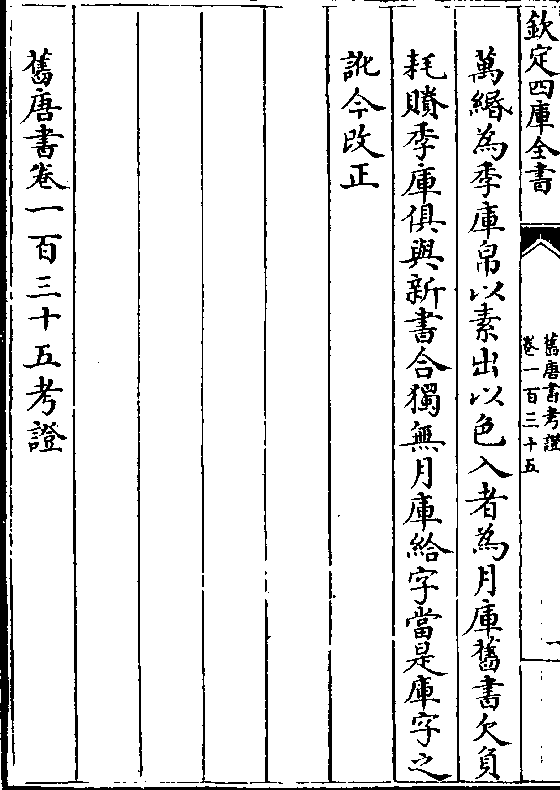 欽定四庫全書
舊唐書考證
卷一百三十五
萬緡為季庫帛以素出以色入者為月庫舊書欠負
耗賸季庫俱與新書合獨無月庫給字當是庫字之
訛今改正
舊唐書卷一百三十五考證